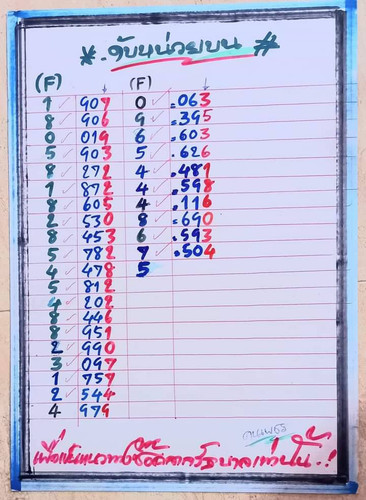 *. ดับหน่วยบน #
(F) (F)
1 907 0 .063
8 906 9 .395
0 019 6 .603
5 903 5 .626
8 272 4 .481
1 872 4 .598
8 605 4 .116
2 530 8 .690
8 453 6 .593
5 782 7 .504
4 478 5
5 812
4 202
8 446
8 951
2 990
3 097
1 757
2 544
4 979
เพื่อเป็นแนวทางซื้อสลากรัฐบาลเท่านั้น.!